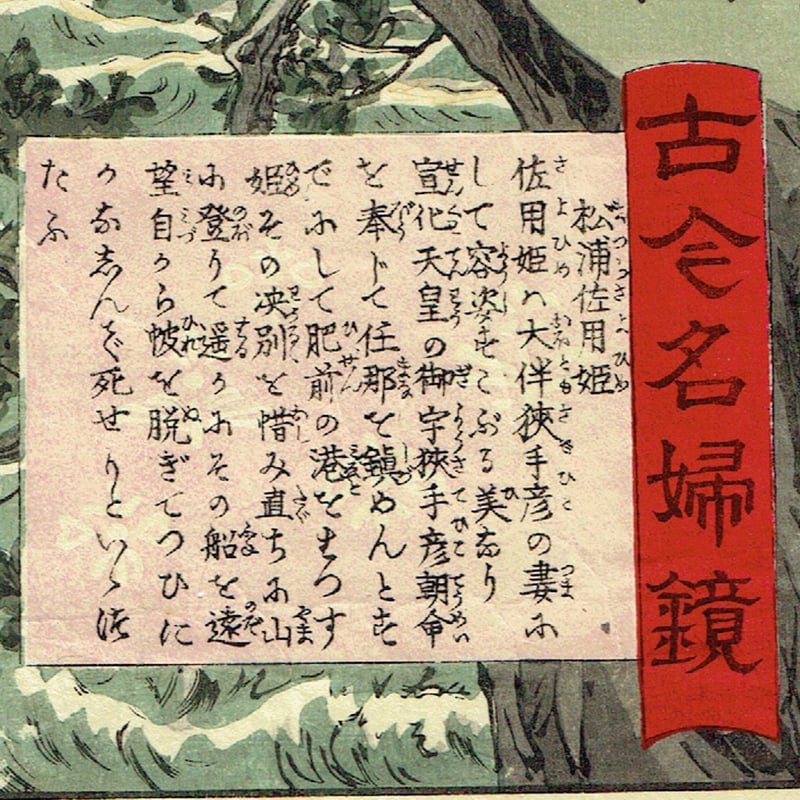 古今名婦鏡
松浦佐用姫
佐用姫ハ大伴狭手彦の妻に
して容姿すこぶる美なり
宣化天皇の御宇狭手彦朝命
を奉じて任那を鎮めんとす
でにして肥前の港をはつす
姫その决別を惜み直ちに山
に登りて遥かにその船を遠
望自から帔を脱ぎてつひに
かなしんで死せりといゝつ
たふ